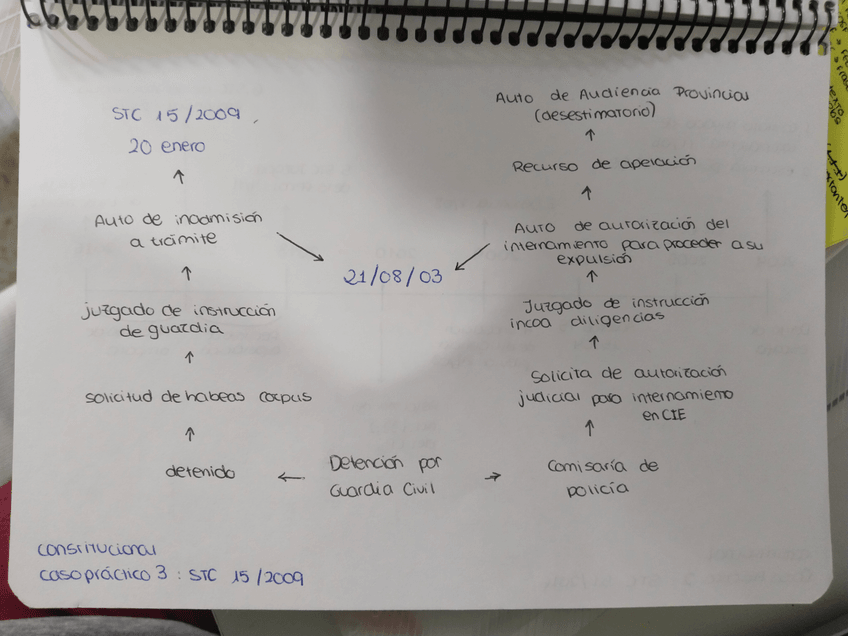 STC 15/2009,
20 enero
↑
Auto de inadmisión
a trámite
↑
juzgado de instrucción
de guardia
↑
solicitud de habeas corpus
↑
detenido
←
Detención por
Guardia Civil
→
21/08/03
Auto de Audiencia Provincial
(desestimatorio)
↑
Recurso de apelación
↑
Auto de autorización del
internamiento para proceder a su
expulsión
↑
Juzgado de instrucción
incoa diligencias
↑
Solicita de autorización
judicial para internamiento
en CIE
↑
Comisaría de
policía
constitucional
caso práctico 3 : STC 15/2009